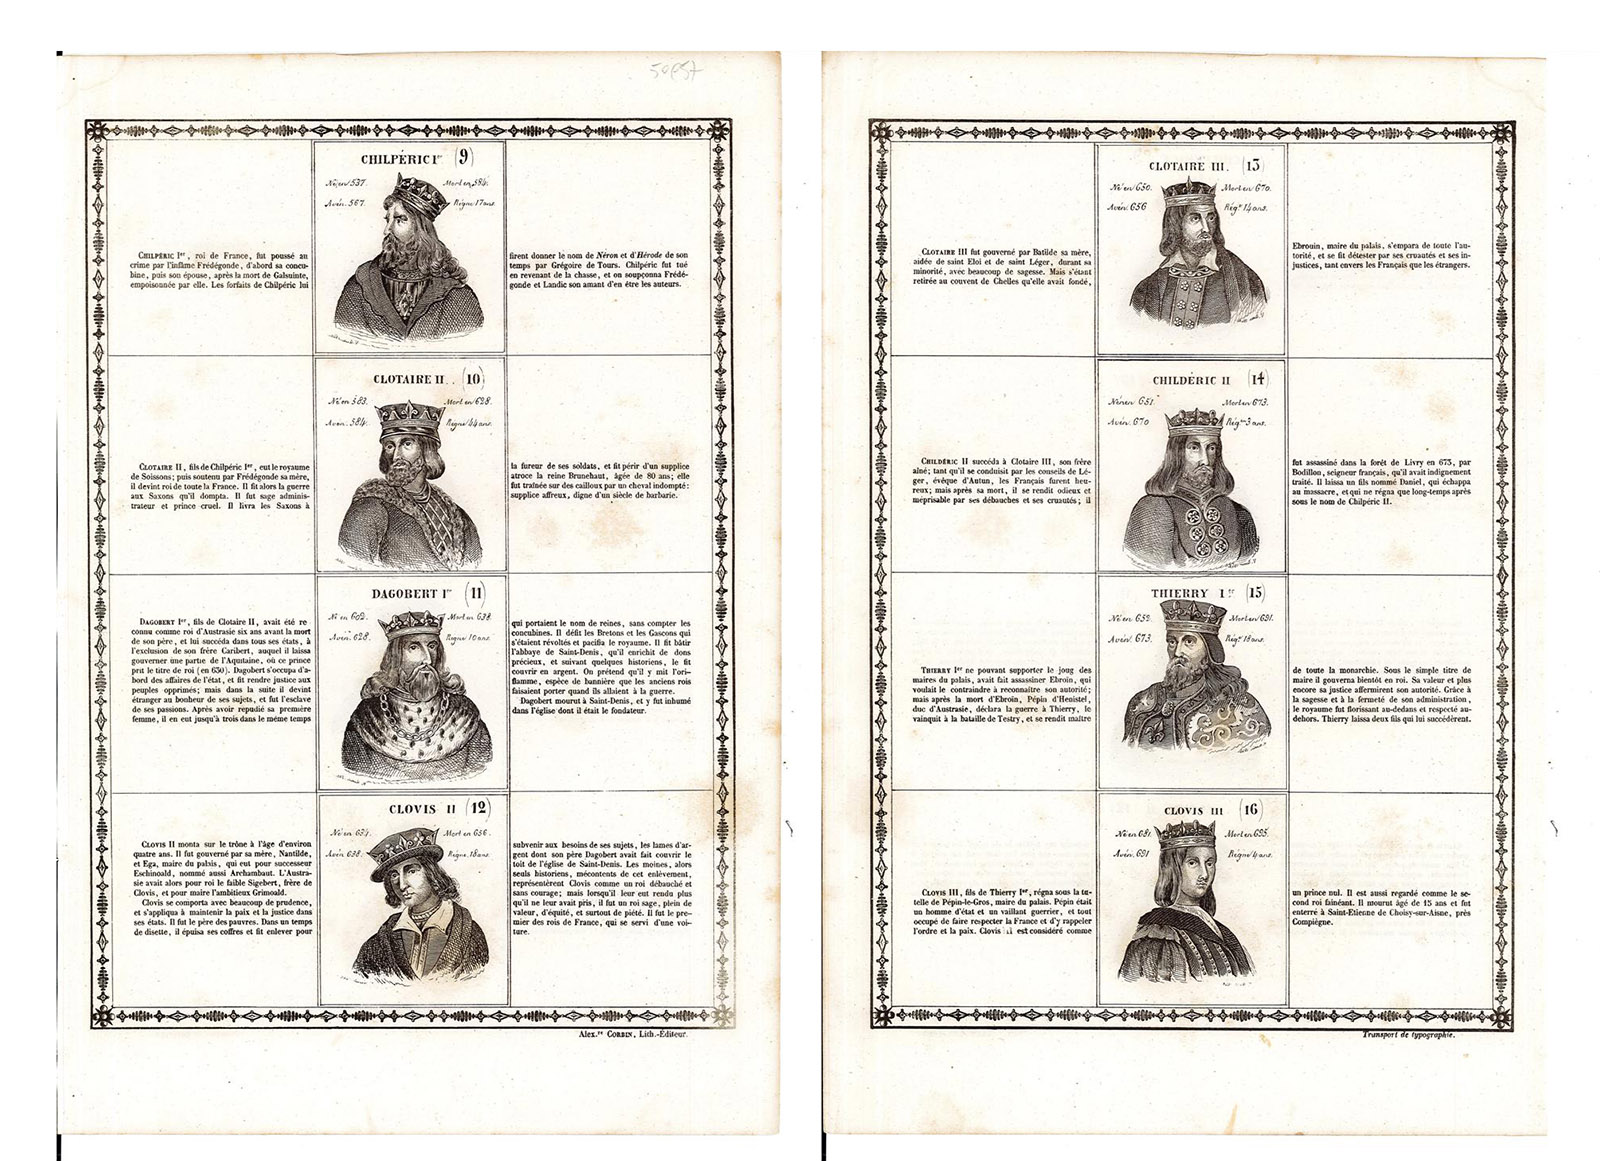 50857
CHILPÉRIC Ier (9)
Né en 537. Mort en 584.
Avén. 567. Règne 17 ans.
CHILPÉRIC Ier, roi de France, fut poussé au
crime par l'infâme Frédégonde, d'abord sa concu-
bine, puis son épouse, après la mort de Galsuinte,
empoisonnée par elle. Les forfaits de Chilpéric lui
firent donner le nom de Néron et d'Hérode de son
temps par Grégoire de Tours. Chilpéric fut tué
en revenant de la chasse, et on soupçonna Frédé-
gonde et Landic son amant d'en être les auteurs.
CLOTAIRE II. (10)
Né en 583. Mort en 628.
Avén. 584. Règne 44 ans.
CLOTAIRE II, fils de Chilpéric Ier, eut le royaume
de Soissons; puis soutenu par Frédégonde sa mère,
il devint roi de toute la France. Il fit alors la guerre
aux Saxons qu'il dompta. Il fut sage adminis-
trateur et prince cruel. Il livra les Saxons à
la fureur de ses soldats, et fit périr d'un supplice
atroce la reine Brunehaut, âgée de 80 ans; elle
fut traînée sur des cailloux par un cheval indompté:
supplice affreux, digne d'un siècle de barbarie.
DAGOBERT Ier (11)
Né en 602. Mort en 638.
Avén. 628. Règne 10 ans.
DAGOBERT Ier, fils de Clotaire II, avait été re
connu comme roi d'Austrasie six ans avant la mort
de son père, et lui succéda dans tous ses états, à
l'exclusion de son frère Caribert, auquel il laissa
gouverner une partie de l'Aquitaine, où ce prince
prit le titre de roi (en 630). Dagobert s'occupa d'a-
bord des affaires de l'état, et fit rendre justice aux
peuples opprimés; mais dans la suite il devint
étranger au bonheur de ses sujets, et fut l'esclave
de ses passions. Après avoir repudié sa première
femme, il en eut jusqu'à trois dans le même temps
qui portaient le nom de reines, sans compter les
concubines. Il défit les Bretons et les Gascons qui
s'étaient révoltés et pacifia le royaume. Il fit bâtir
l'abbaye de Saint-Denis, qu'il enrichit de dons
précieux, et suivant quelques historiens, le fit
couvrir en argent. On prétend qu'il y mit l'ori-
flamme, espèce de bannière que les anciens rois
faisaient porter quand ils allaient à la guerre.
Dagobert mourut à Saint-Denis, et y fut inhumé
dans l'église dont il était le fondateur.
CLOVIS II (12)
Né en 634. Mort en 656.
Avén. 638. Règne. 18 ans.
CLOVIS II monta sur le trône à l'âge d'environ
quatre ans. Il fut gouverné par sa mère, Nantilde,
et Ega, maire du palais, qui eut pour successeur
Eschinoald, nommé aussi Archambaut. L'Austra-
sie avait alors pour roi le faible Sigebert, frère de
Clovis, et pour maire l'ambitieux Grimoald.
Clovis se comporta avec beaucoup de prudence,
et s'appliqua à maintenir la paix et la justice dans
ses états. Il fut le père des pauvres. Dans un temps
de disette, il épuisa ses coffres et fit enlever pour
subvenir aux besoins de ses sujets, les lames d'ar-
gent dont son père Dagobert avait fait couvrir le
toit de l'église de Saint-Denis. Les moines, alors
seuls historiens, mécontents de cet enlèvement,
représentèrent Clovis comme un roi débauché et
sans courage; mais lorsqu'il leur eut rendu plus
qu'il ne leur avait pris, il fut un roi sage, plein de
valeur, d'équité, et surtout de piété. Il fut le pre-
mier des rois de France, qui se servi d'une voi-
ture.
Alex.re CORBIN, Lith.-Éditeur.
CLOTAIRE III. (13)
Né en 650. Mort en 670.
Avén. 656 Règ.e 14 ans.
CLOTAIRE III fut gouverné par Batilde sa mère,
aidée de saint Eloi et de saint Léger, durant sa
minorité, avec beaucoup de sagesse. Mais s'étant
retirée au couvent de Chelles qu'elle avait fondé,
Ebrouin, maire du palais, s'empara de toute l'au-
torité, et se fit détester par ses cruautés et ses in-
justices, tant envers les Français que les étrangers.
CHILDÉRIC II (14)
Né en 651. Mort en 673.
Avén. 670 Règ.e 3 ans.
CHILDÉRIC II succéda à Clotaire III, son frère
aîné; tant qu'il se conduisit par les conseils de Lé-
ger, évêque d'Autun, les Français furent heu-
reux; mais après sa mort, il se rendit odieux et
méprisable par ses débauches et ses cruautés; il
fut assassiné dans la forêt de Livry en 673, par
Bodillon, seigneur français, qu'il avait indignement
traité. Il laissa un fils nommé Daniel, qui échappa
au massacre, et qui ne régna que long-temps après
sous le nom de Chilpéric II.
THIERRY Ier (15)
Né en 652. Mort en 691.
Avén. 673. Règ.e 18 ans.
THIERRY Ier ne pouvant supporter le joug des
maires du palais, avait fait assassiner Ebroïn, qui
voulait le contraindre à reconnaître son autorité;
mais après la mort d'Ebroïn, Pépin d'Heristel,
duc d'Austrasie, déclara la guerre à Thierry, le
vainquit à la bataille de Testry, et se rendit maître
de toute la monarchie. Sous le simple titre de
maire il gouverna bientôt en roi. Sa valeur et plus
encore sa justice affermirent son autorité. Grâce à
la sagesse et à la fermeté de son administration,
le royaume fut florissant au-dedans et respecté au-
dehors. Thierry laissa deux fils qui lui succédèrent.
CLOVIS III (16)
Né en 681. Mort en 695.
Avén. 691 Règne 4 ans.
CLOVIS III, fils de Thierry Ier, régna sous la tu-
telle de Pépin-le-Gros, maire du palais. Pépin était
un homme d'état et un vaillant guerrier, et tout
occupé de faire respecter la France et d'y rappeler
l'ordre et la paix. Clovis II est considéré comme
un prince nul. Il est aussi regardé comme le se-
cond roi fainéant. Il mourut âgé de 15 ans et fut
enterré à Saint-Etienne de Choisy-sur-Aisne, près
Compiègne.
Transport de typographie.